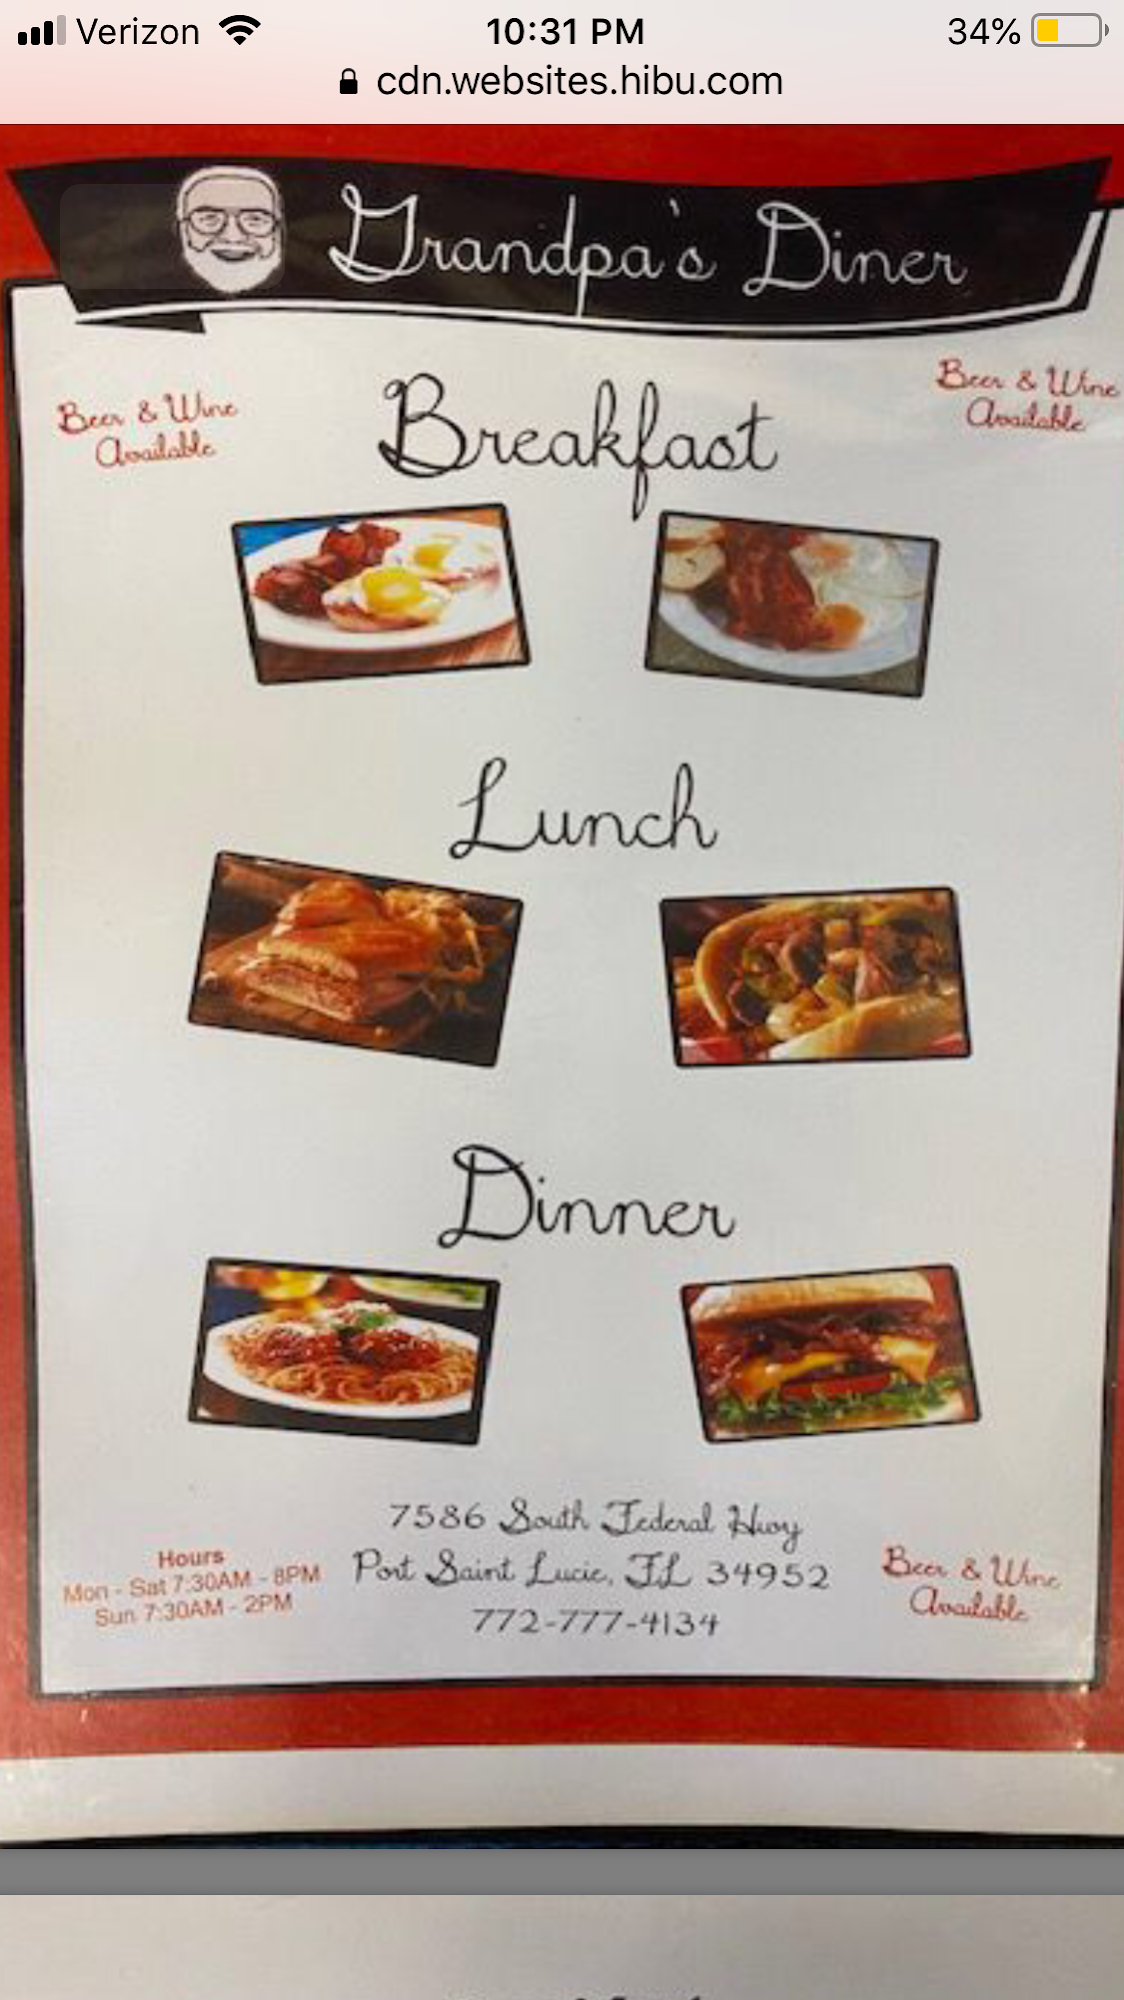 Verizon 10:31 PM 34%
cdn.websites.hibu.com
Grandpa's Diner
Beer & Wine
Available
Breakfast
Beer & Wine
Available
Lunch
Dinner
7586 South Federal Hwy
Port Saint Lucie, FL 34952
772-777-4134
Hours
Mon - Sat 7:30AM - 8PM
Sun 7:30AM - 2PM
Beer & Wine
Available